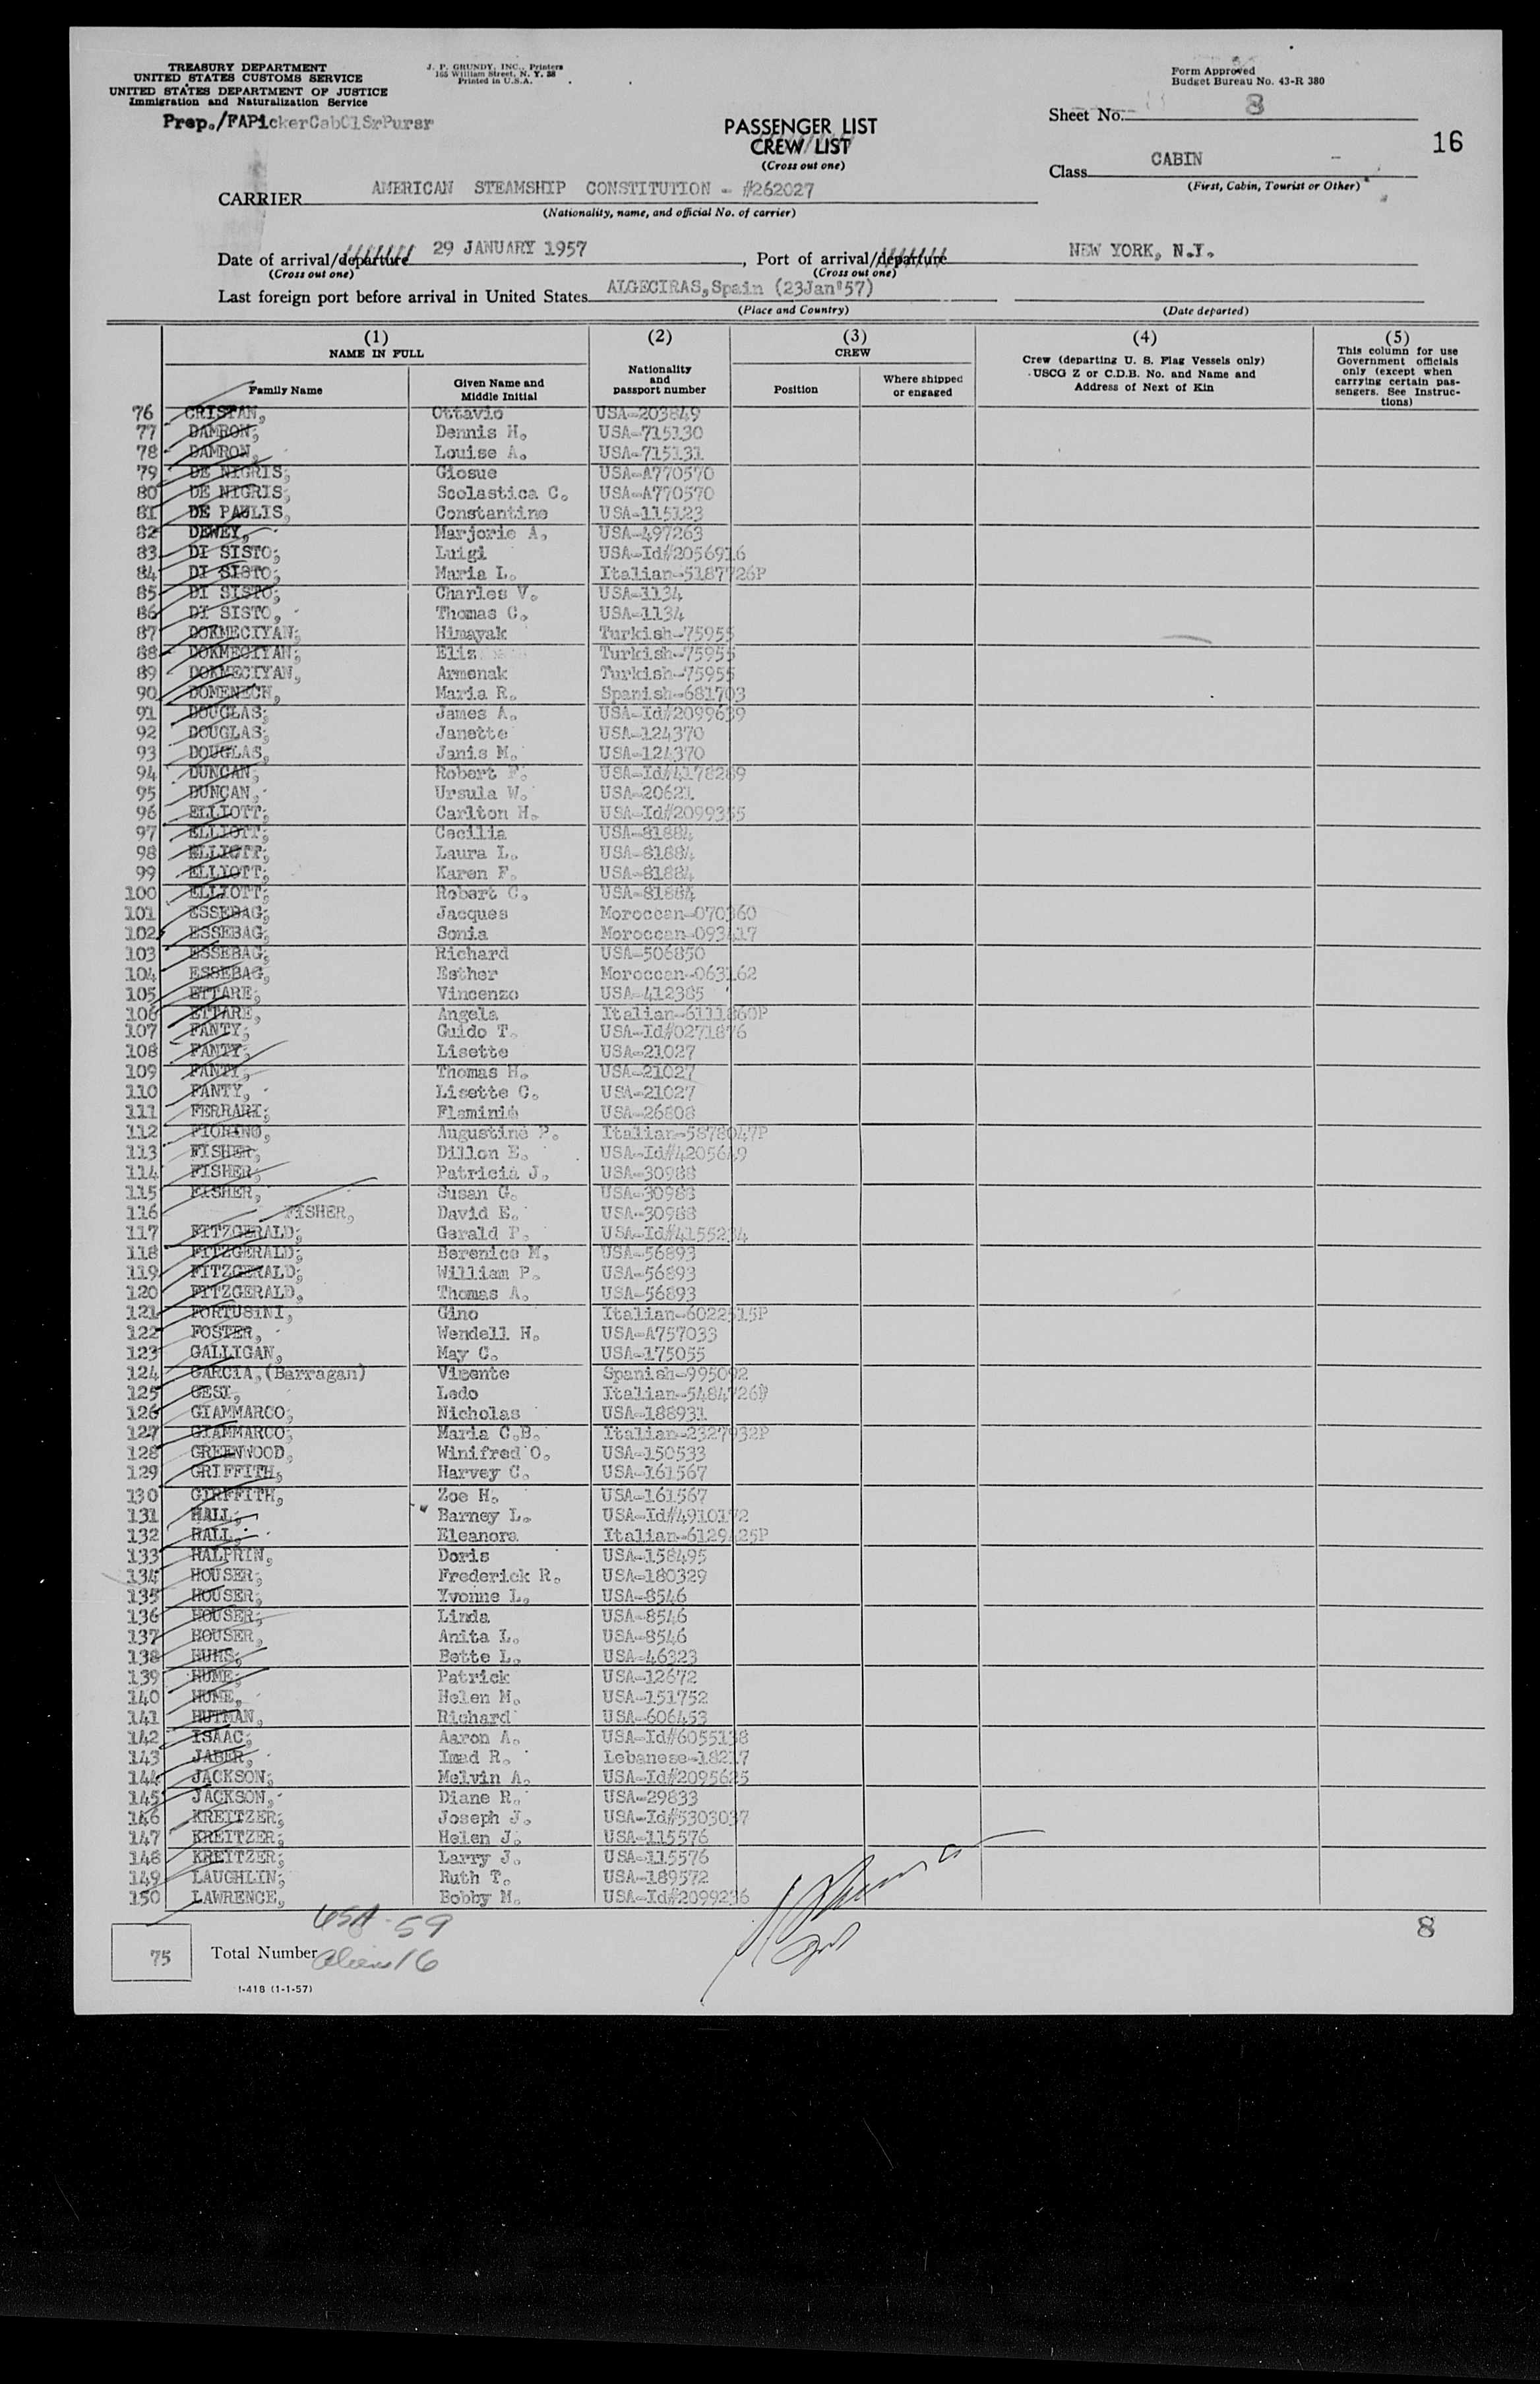 TREASURY DEPARTMENT
UNITED STATES CUSTOMS SERVICE
UNITED STATES DEPARTMENT OF JUSTICE
Immigration and Naturalization Service
Prep./FAPickerCabClSrPursr
J. P. GRUNDY, INC., Printers
165 William Street, N. Y. 38
Printed in U.S.A.
Form Approved
Budget Bureau No. 43-R 380
PASSENGER LIST
CREW LIST
(Cross out one)
Sheet No. 8
16
Class CABIN
(First, Cabin, Tourist or Other)
CARRIER AMERICAN STEAMSHIP CONSTITUTION - #262027
(Nationality, name, and official No. of carrier)
Date of arrival/departure 29 JANUARY 1957, Port of arrival/departure NEW YORK, N.Y.
(Cross out one) (Cross out one)
Last foreign port before arrival in United States ALGECIRAS,Spain (23Jan'57)
(Place and Country) (Date departed)
(1) NAME IN FULL
Family Name
Given Name and Middle Initial
(2) Nationality and passport number
(3) CREW
Position
Where shipped or engaged
(4) Crew (departing U. S. Flag Vessels only) USCG Z or C.D.B. No. and Name and Address of Next of Kin
(5) This column for use Government officials only (except when carrying certain passengers. See Instructions)
76 CRISTAN, Ottavio USA-203849
77 DAMRON, Dennis H. USA-715130
78 DAMRON, Louise A. USA-715131
79 DE NIGRIS, Giosue USA-A770570
80 DE NIGRIS, Scolastica C. USA-A770570
81 DE PAULIS, Constantino USA-115123
82 DEWEY, Marjorie A. USA-497263
83 DI SISTO, Luigi USA-Id#2056916
84 DI SISTO, Maria L. Italian-5187726P
85 DI SISTO, Charles V. USA-1134
86 DI SISTO, Thomas C. USA-1134
87 DOKMECIYAN, Himayak Turkish-75955
88 DOKMECIYAN, Eliz Turkish-75955
89 DOKMECIYAN, Armenak Turkish-75955
90 DOMENECH, Maria R. Spanish-681703
91 DOUGLAS, James A. USA-Id#2099639
92 DOUGLAS, Janette USA-124370
93 DOUGLAS, Janis M. USA-124370
94 DUNCAN, Robert F. USA-Id#4178289
95 DUNCAN, Ursula W. USA-20621
96 ELLIOTT, Carlton H. USA-Id#2099355
97 ELLIOTT, Cecilia USA-81884
98 ELLIOTT, Laura L. USA-81884
99 ELLIOTT, Karen F. USA-81884
100 ELLIOTT, Robert C. USA-81884
101 ESSEBAG, Jacques Moroccan-070360
102 ESSEBAG, Sonia Moroccan-093417
103 ESSEBAG, Richard USA-506850
104 ESSEBAG, Esther Moroccan-063162
105 ETTARE, Vincenzo USA-412385
106 ETTARE, Angela Italian-6111860P
107 FANTY, Guido T. USA-Id#0271876
108 FANTY, Lisette USA-21027
109 FANTY, Thomas H. USA-21027
110 FANTY, Lisette C. USA-21027
111 FERRARI, Flaminio USA-26808
112 FIORINO, Augustine P. Italian-5878047P
113 FISHER, Dillon E. USA-Id#4205649
114 FISHER, Patricia J. USA-30988
115 FISHER, Susan G. USA-30988
116 FISHER, David E. USA-30988
117 FITZGERALD, Gerald P. USA-Id#4155234
118 FITZGERALD, Berenice M. USA-56893
119 FITZGERALD, William P. USA-56893
120 FITZGERALD, Thomas A. USA-56893
121 FORTUSINI, Gino Italian-6022515P
122 FOSTER, Wendell H. USA-A757033
123 GALLIGAN, May C. USA-175055
124 GARCIA,(Barragan) Vicente Spanish-995092
125 GESI, Ledo Italian-5484726P
126 GIAMMARCO, Nicholas USA-188931
127 GIAMMARCO, Maria C.B. Italian-2327932P
128 GREENWOOD, Winifred O. USA-150533
129 GRIFFITH, Harvey C. USA-161567
130 GIRFFITH, Zoe H. USA-161567
131 HALL, Barney L. USA-Id#4910172
132 HALL, Eleanora Italian-6129425P
133 HALPRIN, Doris USA-158495
134 HOUSER, Frederick R. USA-180329
135 HOUSER, Yvonne L. USA-8546
136 HOUSER, Linda USA-8546
137 HOUSER, Anita L. USA-8546
138 HUHS, Bette L. USA-46323
139 HUME, Patrick USA-12672
140 HUME, Helen M. USA-151752
141 HUTMAN, Richard USA-606453
142 ISAAC, Aaron A. USA-Id#6055138
143 JABER, Imad R. Lebanese-18217
144 JACKSON, Melvin A. USA-Id#2095625
145 JACKSON, Diane R. USA-29833
146 KREITZER, Joseph J. USA-Id#5303037
147 KREITZER, Helen J. USA-115576
148 KREITZER, Larry J. USA-115576
149 LAUGHLIN, Ruth T. USA-189572
150 LAWRENCE, Bobby M. USA-Id#2099236
USA-59
75 Total Number Aliens 16
8
I-418 (1-1-57)